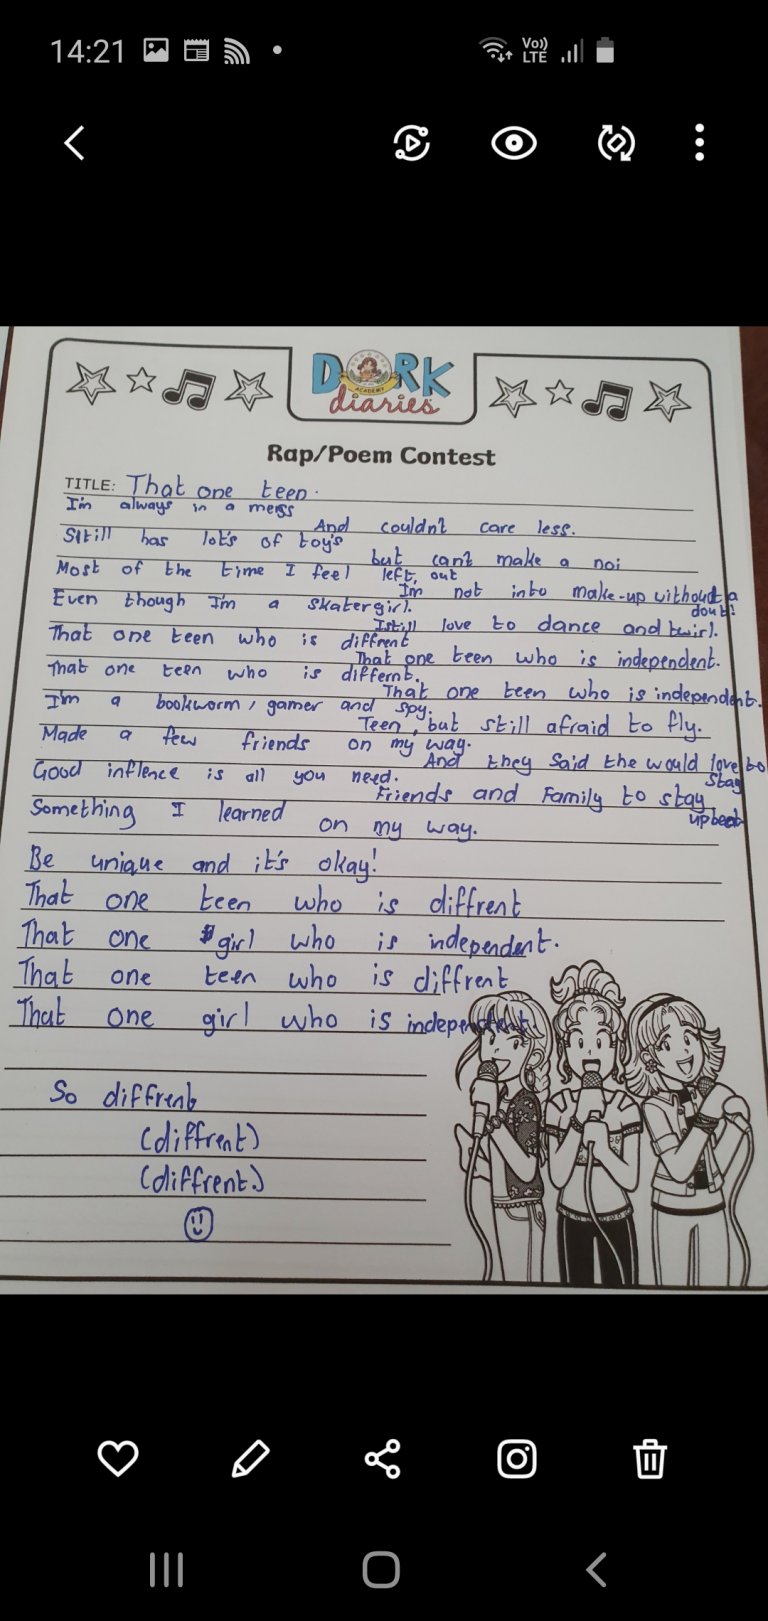 14:21
Vo)) LTE
DORK
ACADEMY
diaries
Rap/Poem Contest
TITLE: That one teen.
I'm always in a mess
And couldn't care less.
Still has lot's of toy's
but can't make a noi
Most of the time I feel left, out
I'm not into make-up without a
dout!
Even though I'm a skatergirl.
I still love to dance and twirl.
That one teen who is diffrent
That one teen who is independent.
That one teen who is differnt.
That one teen who is independent.
I'm a bookworm, gamer and spy.
Teen, but still afraid to fly.
Made a few friends on my way.
And they said the would love to
stay
Good inflence is all you need.
Friends and Family to stay
upbeat
Something I learned on my way.
Be unique and it's okay!
That one teen who is diffrent
That one girl who is independent.
That one teen who is diffrent
That one girl who is independent.
So diffrent
(diffrent)
(diffrent.)